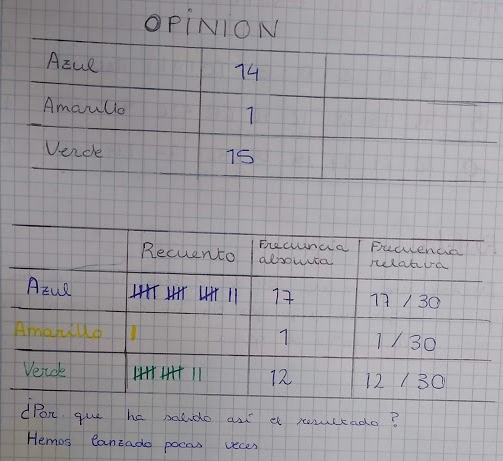 OPINION
Azul 14
Amarillo 1
Verde 15
Recuento Frecuencia absoluta Frecuencia relativa
Azul 17 17 / 30
Amarillo 1 1 / 30
Verde 12 12 / 30
¿Por que ha salido así el resultado?
Hemos lanzado pocas veces